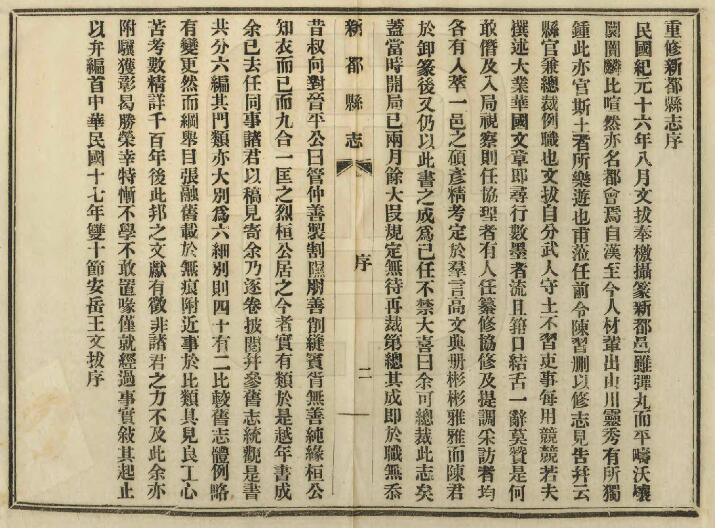 重修新都縣志序
民國紀元十六年八月文拔奉檄攝篆新都邑雖彈丸而平疇沃壤
闤闠麟比喧然亦名都會焉自漢至今人材輩出山川靈秀有所獨
鍾此亦官斯土者所樂遊也甫蒞任前令陳習刪以修志見告幷云
縣官兼總裁例職也文拔自分武人守土不習吏事每用兢兢若夫
撰述大業華國文章即尋行數墨者流且箝口結舌一辭莫贊是何
敢僭及入局視察則任協理者有人任纂修協修及提調采訪者均
各有人萃一邑之碩彥精考定於羣言高文典册彬彬雅雅而陳君
於卸篆後又仍以此書之成爲己任不禁大喜曰余可總裁此志矣
蓋當時開局已兩月餘大段規定無待再裁第總其成即於職無忝
新都縣志
序
二
昔叔向對晉平公曰管仲善製割隰朋善削縫賓胥無善純緣桓公
知衣而已而九合一匡之烈桓公居之今者實有類於是越年書成
余已去任同事諸君以稿見寄余乃逐卷披閱幷參舊志統觀是書
共分六編其門類亦大別爲六細別則四十有二比較舊志體例略
有變更然而綱舉目張融舊載於無痕附近事於比類具見良工心
苦考數精詳千百年後此邦之文獻有徵非諸君之力不及此余亦
附驥獲彰曷勝榮幸特慚不學不敢置喙僅就經過事實敍其起止
以弁編首中華民國十七年雙十節安岳王文拔序